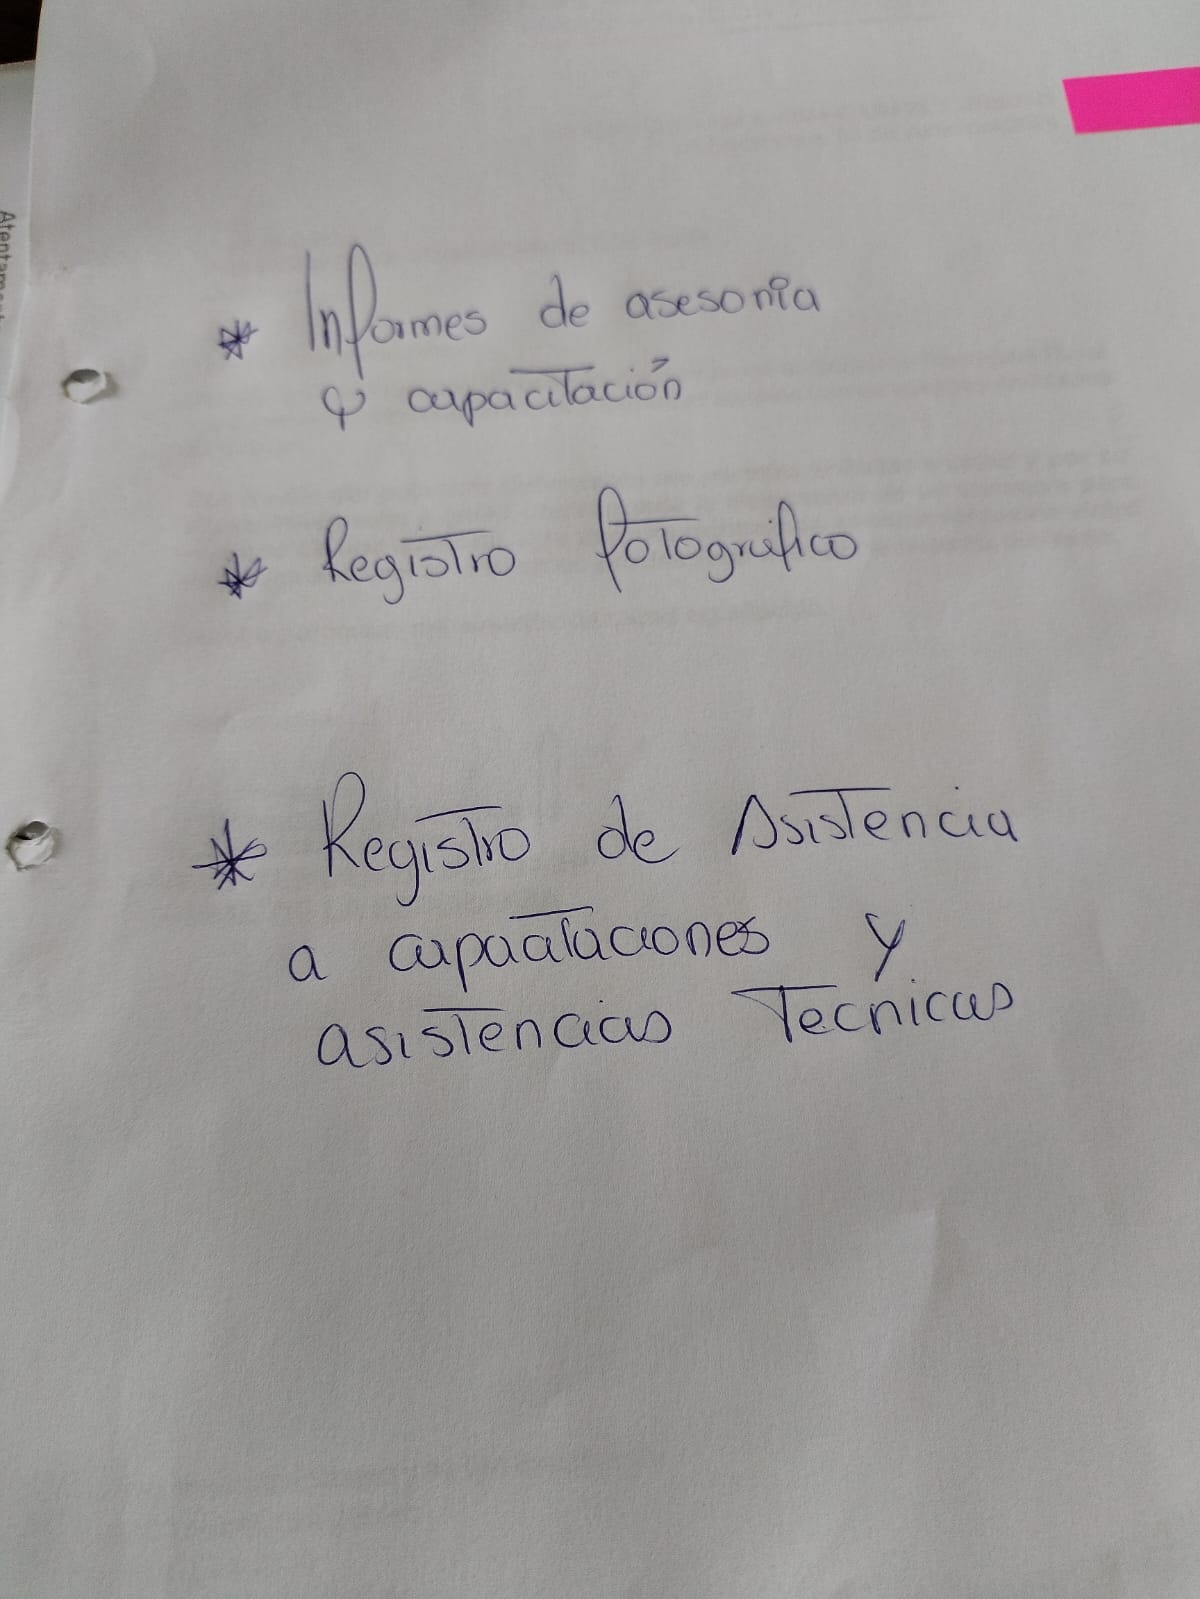 * Informes de asesoria
y capacitación
* Registro fotografico
* Registro de Asistencia
a capacitaciones y
asistencias Tecnicas